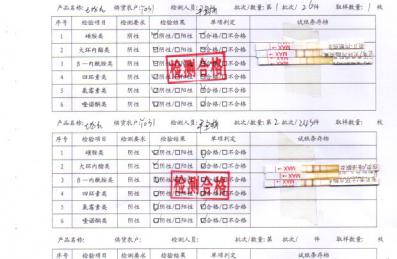 产品名称: 供货农户: 检测人员: 批次/数量: 第1批次/ 件 取样数量: 1 枚
序号 检验项目 检测要求 检验结果 单项判定 试纸条存档
1 磺胺类 阴性 ☑阴性/☐阳性 ☑合格/☐不合格
2 大环内酯类 阴性 ☑阴性/☐阳性 ☑合格/☐不合格
3 β-内酰胺类 阴性 ☑阴性/☐阳性 ☑合格/☐不合格
4 四环素类 阴性 ☑阴性/☐阳性 ☑合格/☐不合格
5 氟霉素类 阴性 ☑阴性/☐阳性 ☑合格/☐不合格
6 喹诺酮类 阴性 ☑阴性/☐阳性 ☑合格/☐不合格
检测合格
MAX
MAX
产品名称: 供货农户: 检测人员: 批次/数量: 第2批次/ 件 取样数量: 1 枚
序号 检验项目 检测要求 检验结果 单项判定 试纸条存档
1 磺胺类 阴性 ☑阴性/☐阳性 ☑合格/☐不合格
2 大环内酯类 阴性 ☑阴性/☐阳性 ☑合格/☐不合格
3 β-内酰胺类 阴性 ☑阴性/☐阳性 ☑合格/☐不合格
4 四环素类 阴性 ☑阴性/☐阳性 ☑合格/☐不合格
5 氟霉素类 阴性 ☑阴性/☐阳性 ☑合格/☐不合格
6 喹诺酮类 阴性 ☑阴性/☐阳性 ☑合格/☐不合格
检测合格
MAX
MAX
产品名称: 供货农户: 检测人员: 批次/数量: 第 批次/ 件 取样数量: 枚
序号 检验项目 检测要求 检验结果 单项判定 试纸条存档